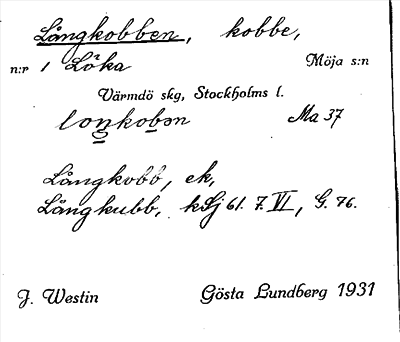 Långkobben, kobbe,
n:r 1 Löka Möja s:n
Värmdö skg, Stockholms l.
loŋkobən Ma 37
Långkobb, ek,
Långkubb, kSj 61. 7. VI, G. 76.
J. Westin Gösta Lundberg 1931